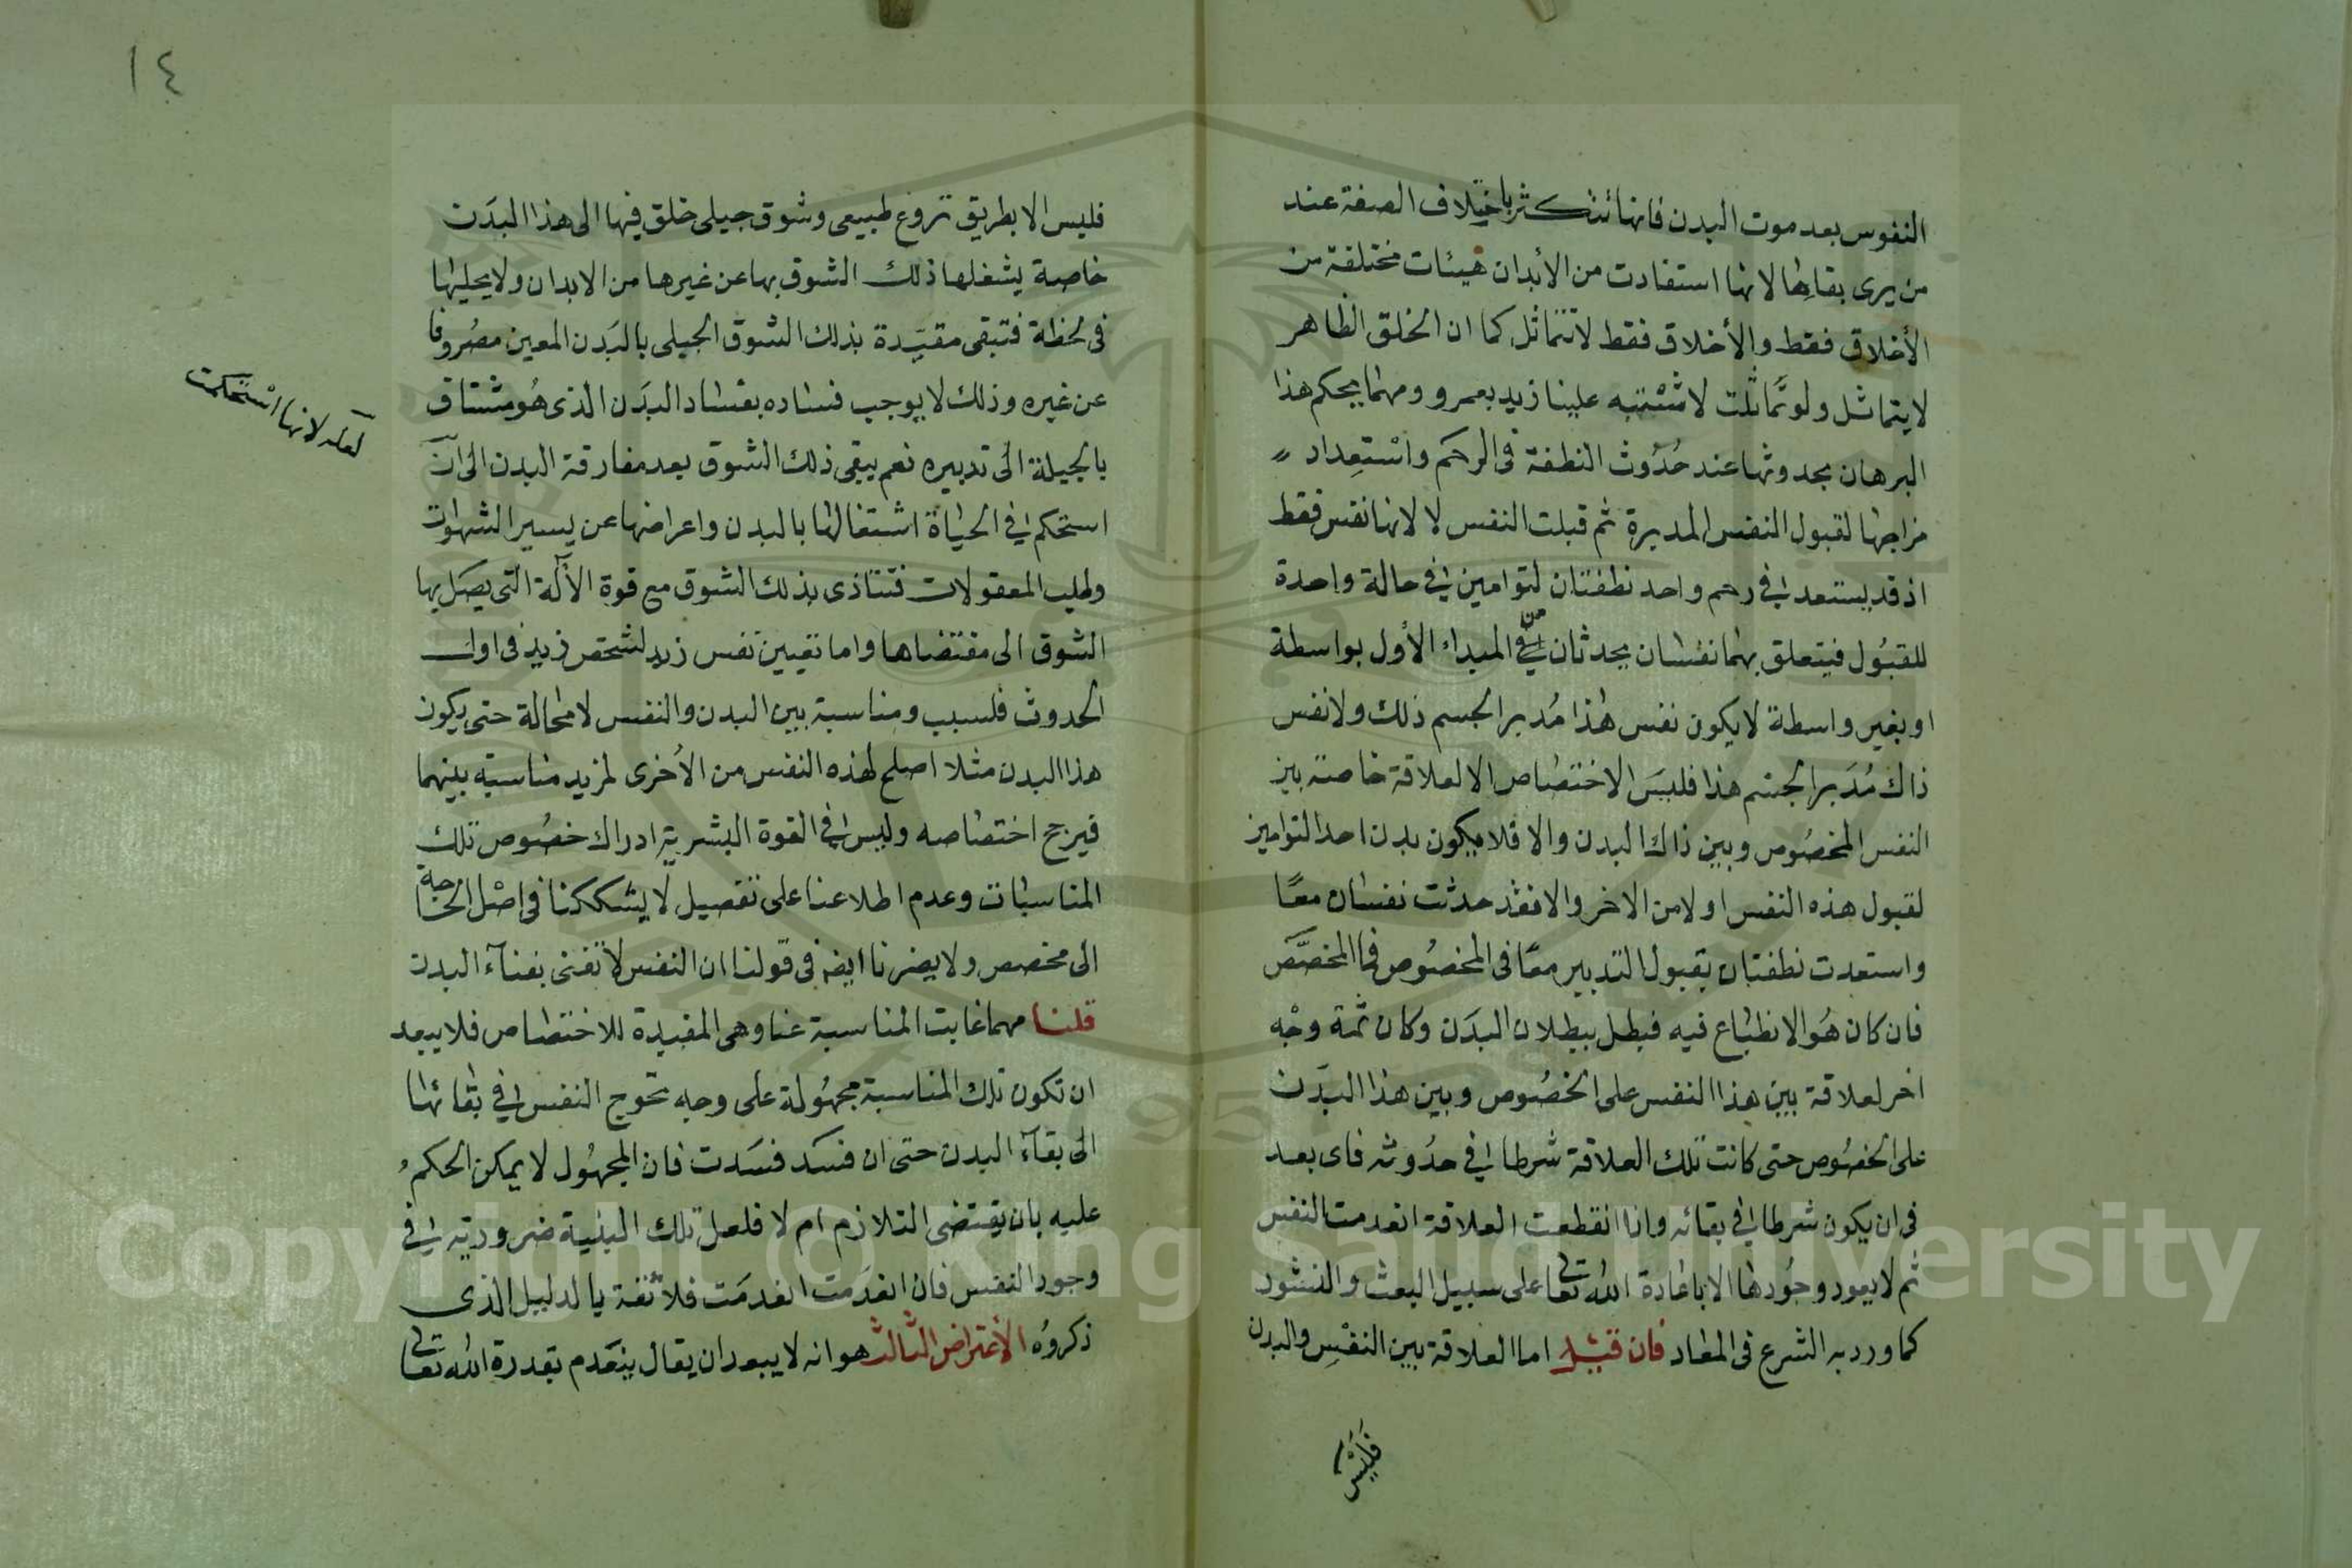 النفوس بعد موت البدن فانها تتكثر باختلاف الصفة عند
من يرى بقاءها لانها استفادت من الأبدان هيئات مختلفة من
الأخلاق فقط والأخلاق فقط لا تتماثل كما ان الخلق الظاهر
لا يتماثل ولو تماثلت لاشتبه علينا زيد بعمرو ومهما يحكم هذا
البرهان بحدوثها عند حُدُوث النطفة في الرحم واستعداد
مزاجها لقبول النفس المدبرة ثم قبلت النفس لا لانها نفس فقط
اذ قد يستعد في رحم واحد نطفتان لتوامين في حالة واحدة
للقبول فيتعلق بهما نفسان يحدثان من المبداء الأول بواسطة
او بغير واسطة لا يكون نفس هذا مُدبر الجسم ذلك ولا نفس
ذاك مُدَبر الجسم هذا فليس الاختصاص الا لعلاقة خاصة بين
النفس المخصُوص وبين ذاك البدن والا فلا يكون بدن احد التوامين
لقبول هذه النفس اولا من الاخر والا فقد حدثت نفسان معًا
واستعدت نطفتان بقبول التدبير معًا في المخصُوص فما المخصَّص
فان كان هُو الانطباع فيه فيبطل ببطلان البدَن وكان ثمة وجْه
اخر لعلاقة بين هذا النفس على الخصُوص وبين هذا البدَن
على الخصُوص حتى كانت تلك العلاقة شرطا في حدُوثه فاى بعد
في ان يكون شرطا في بقائه واذا انقطعت العلاقة انعدمت النفس
ثم لا يعود وجُودها الا باعادة الله تعالى على سبيل البعث والنشور
كما ورد به الشرع في المعاد فان قيل اما العلاقة بين النفس والبدن
فليس
١٤
فليس الا بطريق نزوع طبيعى وشوق جبلى خلق فيها الى هذا البدَن
خاصة يشغلها ذلك الشوق بها عن غيرها من الابدان ولا يخليها
في لحظة فتبقى مقيّدة بذلك الشوق الجبلى بالبَدن المعين مصُروفا
عن غيره وذلك لا يوجب فساده بفساد البدَن الذى هُو مشتاق
بالجبلة الى تدبيره نعم يبقى ذلك الشوق بعد مفارقة البدن الى ان
استحكم في الحياة اشتغالها بالبدن واعراضها عن يسير الشهوات
وطلب المعقولات فتتاذى بذلك الشوق مع قوة الآلة التى يصَل بها
الشوق الى مقتضاها واما تعيين نفس زيد لشخص زيد في اول
الحدوث فلسبب ومناسبة بين البدن والنفس لا محالة حتى يكون
هذا البدن مثلا اصلح لهذه النفس من الأخرى لمزيد مناسبة بينهما
فيرجح اختصاصه وليس في القوة البشرية ادراك خصُوص تلك
المناسبات وعدم اطلاعنا على تفصيل لا يشككنا في اصْل الحاجة
الى مخصص ولا يضرنا ايضه في قولنا ان النفس لا تفنى بفنآء البدن
قلنا مهما غابت المناسبة عنا وهى المقيدة للاختصاص فلا يبعد
ان تكون تلك المناسبة مجهُولة على وجه تحوج النفس في بقائها
الى بقآء البدن حتى ان فسَد فسَدت فان المجهُول لا يمكن الحكم
عليه بان يقتضى التلازم ام لا فلعل تلك النسبة ضرورية في
وجود النفس فان انعدَمت انعدمَت فلا ثقة بالدليل الذى
ذكروُه الأعتراض الثالث هو انه لا يبعد ان يقال ينعَدم بقدرة الله تعالى
لعله لانها استحكمت
Copyright © King Saud University
1957